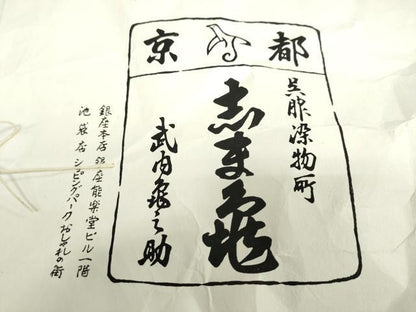 京都
呉服染物所
志ま亀
武内亀之助
銀座本店 銀座能楽堂ビル一階
池袋店 シピングパークおしゃれの街